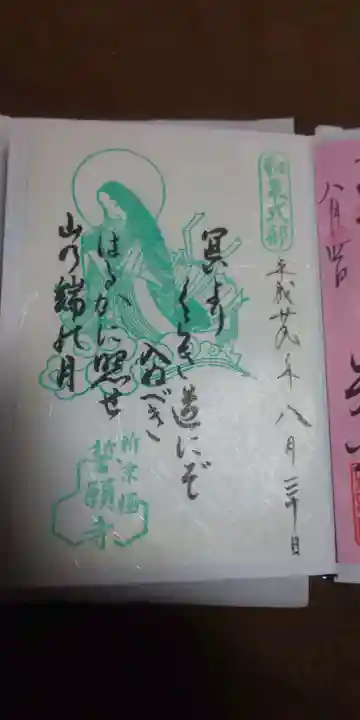 和泉式部
平成廿九年八月三十日
冥より
くらき道にぞ
入ぬべき
はるかに照せ
山乃端の月
新京極
誓願寺
八月